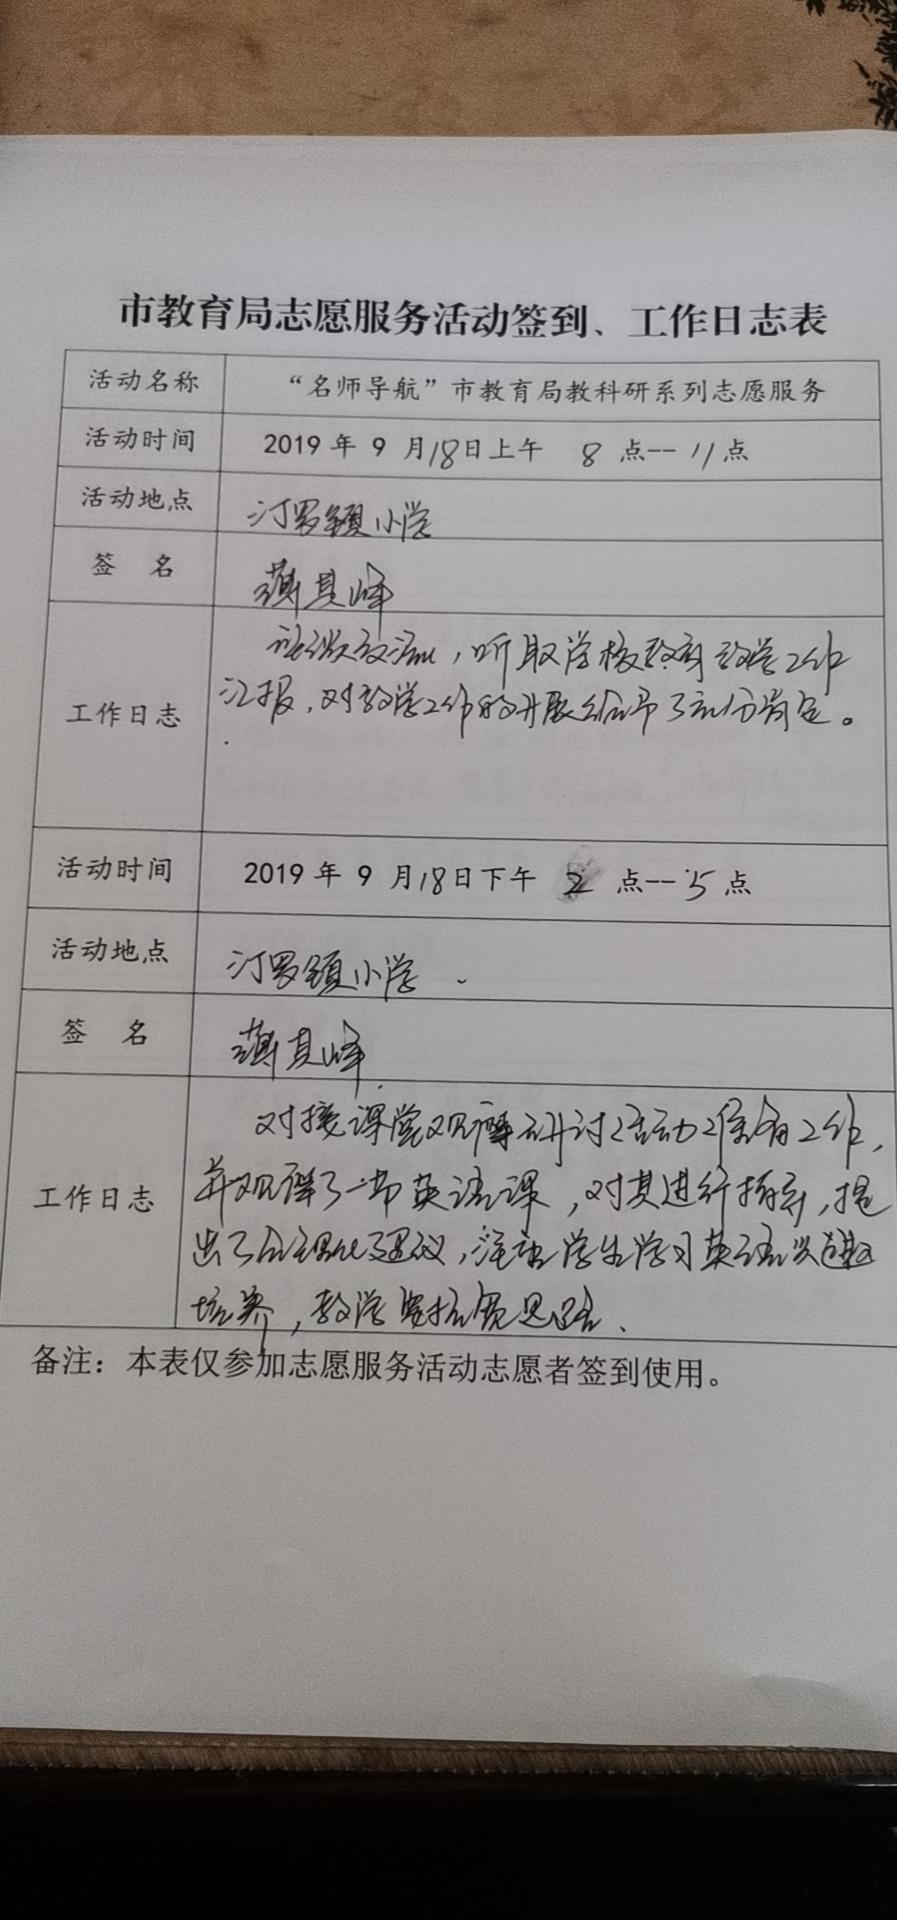 市教育局志愿服务活动签到、工作日志表
活动名称 “名师导航”市教育局教科研系列志愿服务
活动时间 2019 年 9 月18日上午 8 点--11点
活动地点 汀罗镇小学
签 名 其峰
工作日志
，听取学校教育教学工作
汇报，对教学工作的开展给予了充分肯定。
活动时间 2019 年 9 月18日下午 2 点--5点
活动地点 汀罗镇小学
签 名 其峰
工作日志
对接课堂观摩研讨活动准备工作，
并观摩了一节英语课，对其进行指导，提
出了合理化建议，注重学生学习英语兴趣
培养，教学要拓宽思路、
备注：本表仅参加志愿服务活动志愿者签到使用。